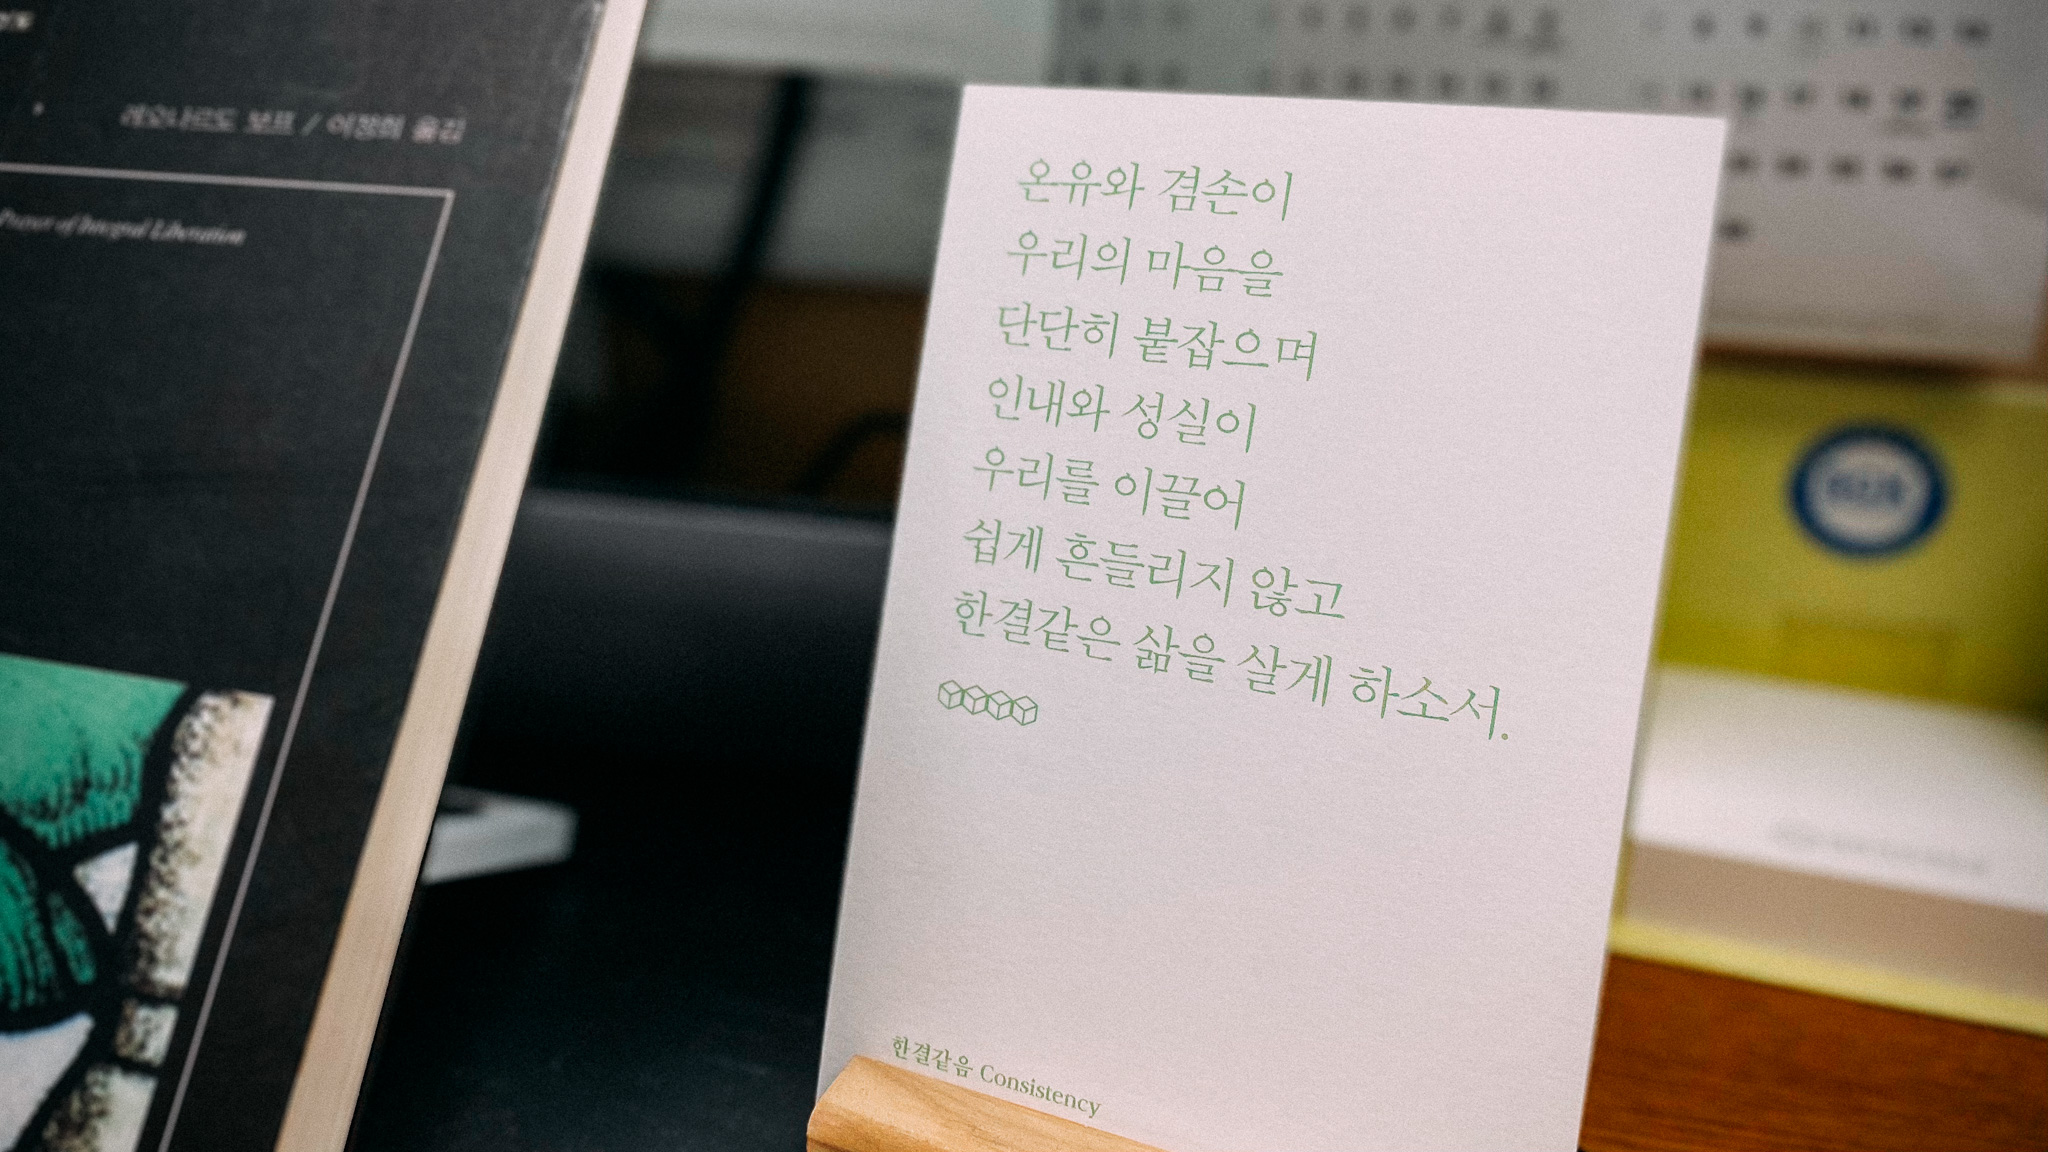 레오나르도 보프 / 이정희 옮김
Prayer of Integral Liberation
온유와 겸손이
우리의 마음을
단단히 붙잡으며
인내와 성실이
우리를 이끌어
쉽게 흔들리지 않고
한결같은 삶을 살게 하소서.
한결같음 Consistency